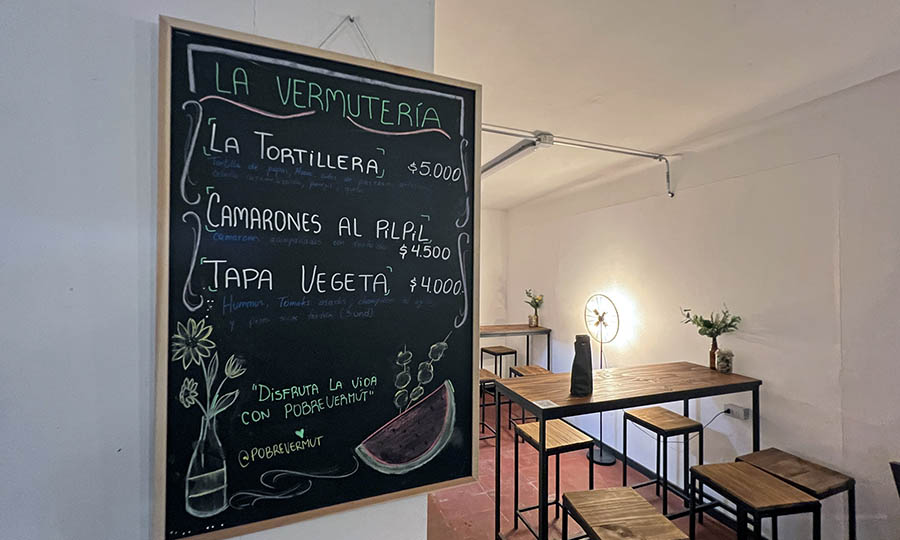 LA VERMUTERÍA
LA TORTILLERA $5.000
Tortilla de papas,
CAMARONES AL PILPIL
Camarones acompañados con
$4.500
TAPA VEGETA $4.000
Hummus, Tomates asados, champiñon al
y
"DISFRUTA LA VIDA
CON POBREVERMUT"
@POBREVERMUT